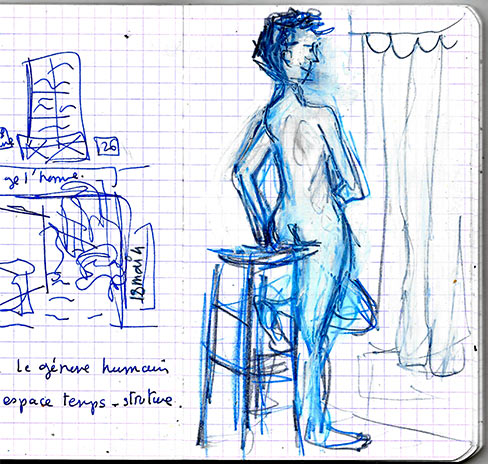 26
ge l'homme.
18 mai
Le genere humain
espace temps - struture.